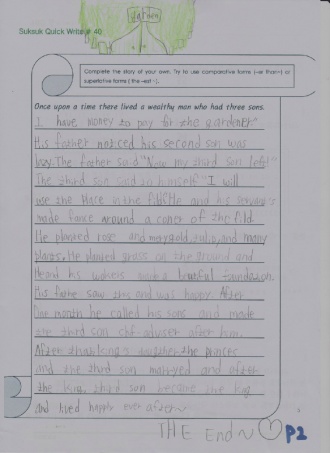 Garden
Suksuk Quick Write # 40
Complete the story of your own. Try to use comparative forms (-er than~) or
superlative forms ( the -est -).
Once upon a time there lived a wealthy man who had three sons.
I have money to pay for the gardener"
His father noticed his second son was
lazy. The father said "Now my third son left"
The third son said to himself "I will
use the place in the He and his servants
made fance around a coner of the fild.
He planted rose and tulip, and many
plants. He planted grass on the ground and
He and his wokers made a
His fathe saw this and was happy. After
One month he called his sons and made
the third son chf-adviser after him.
After the king's the princes
and the third son marryed and after
the king, third son became the king
and lived happily ever after~
THE End~
P2